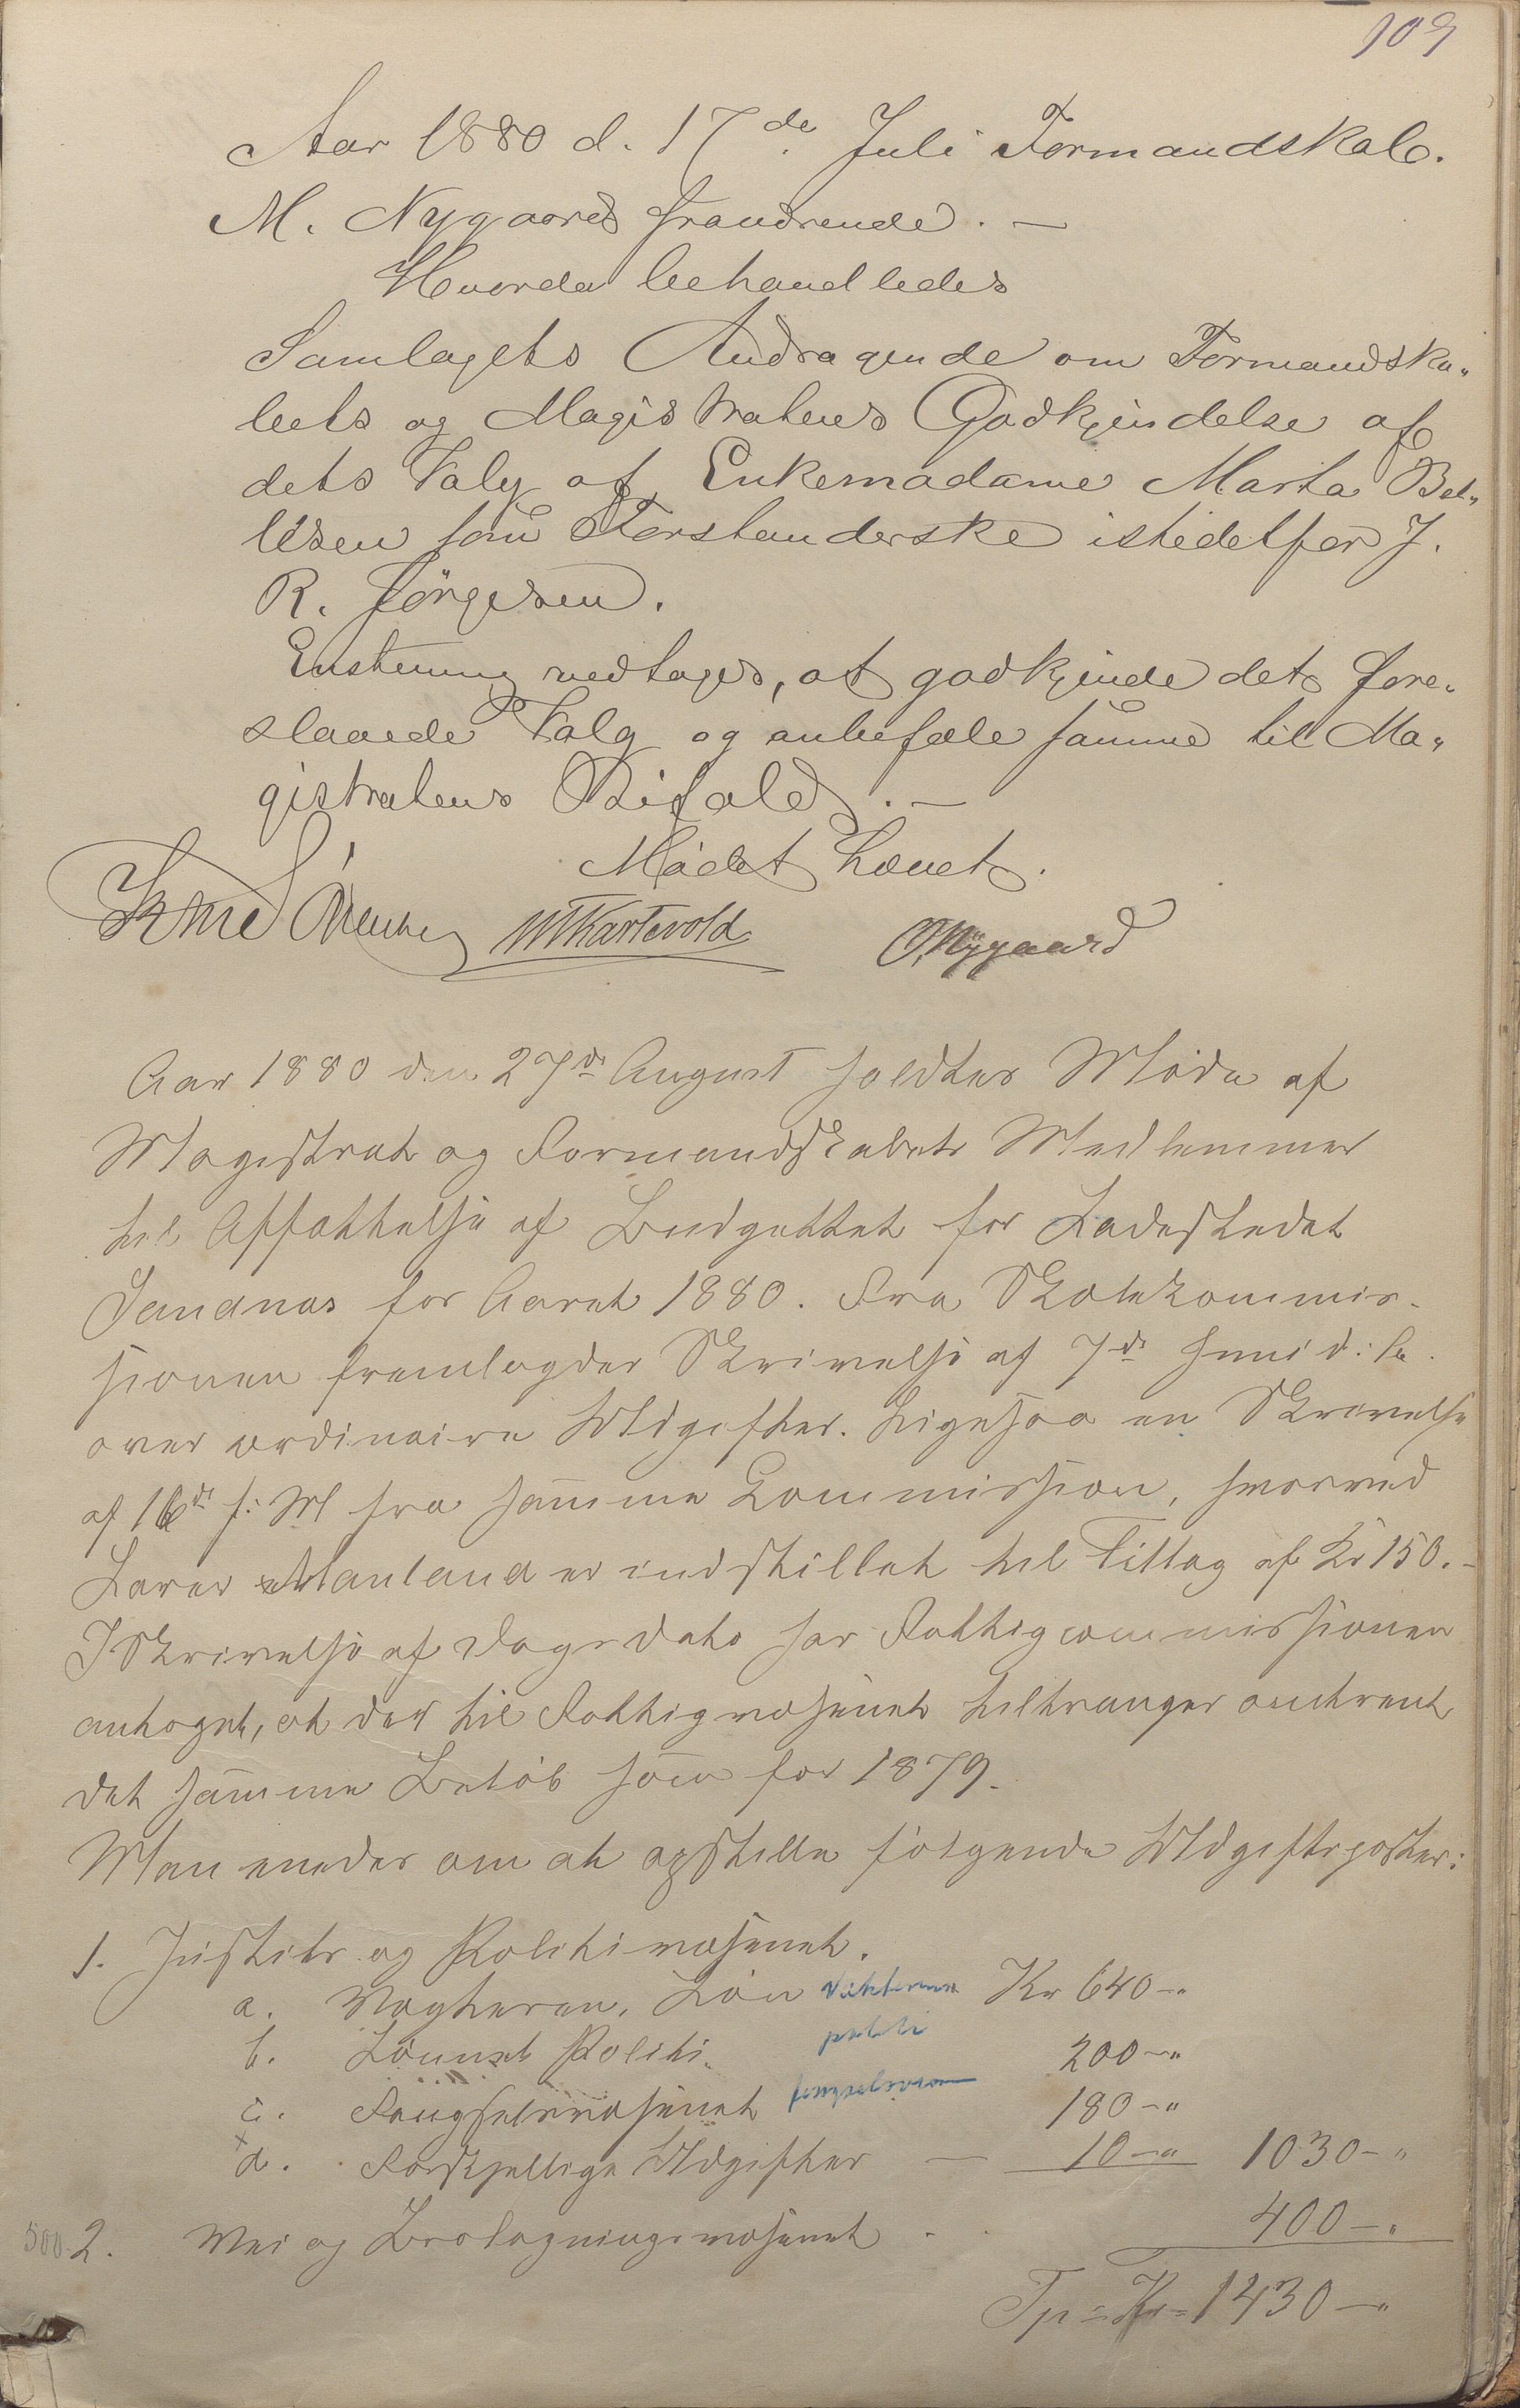 109
Aar 1880 d. 17de Juli Formandskab.
M. Nygaard fraværende. —
Hvorda behandledes
Samlagets Andragende om Formandska„
bets og Magistratens Godkjendelse af
dets Valg af Enkemadame Marta Bel„
lesen som Forstanderske istedetfor J.
R. Jörgesen.
Enstemmig vedtages, at godkjende det fore„
slaaede Valg og anbefale samme til Ma„
gistratens Bifald. —
Mödet hævet.
MTKartevold ONygaard
Aar 1880 den 27de August holdtes Möde af
Magistrat og Formandskabets Medlemmer
til Affattelse af Budgettet for Ladestedet
Sandnæs for Aaret 1880. Fra Skolekommis-
sionen fremlagdes Skrivelse af 7de Juni d: A.
over ordinaire Udgifter. Ligesaa en Skrivelse
af 16de f: M fra samme Commission, hvorved
Lærer Mauland er indstillet til Tillæg af Kr 150.-
I Skrivelse af Dags Dato har Fattigcommissionen
antaget, at der til Fattigvæsenet tiltrænges omtrent
det samme Belöb som for 1879.
Man enedes om at opstille fölgende Udgiftsposter:
1. Justits og Politivæsenet.
a. Vægterne, Lön Vækterne Kr 640-"
b. Lönnet Politi. politi 200-"
c. Fængselsvæsenet fengselsvæsen 180-"
x
d. Forskjellige Udgifter — 10-" 1030-"
500. 2. Vei og Brolægningsvæsenet . . 400-"
Tp = Kr = 1430-"